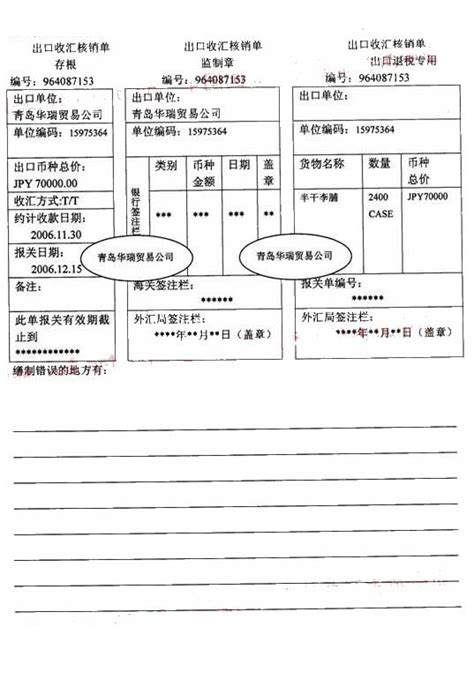 出口收汇核销单
存根
编号：964087153
出口单位：
青岛华瑞贸易公司
单位编码：15975364
出口币种总价：
JPY 70000.00
收汇方式:T/T
约计收款日期：
2006.11.30
报关日期：
2006.12.15
备注：
此单报关有效期截
止到
************
出口收汇核销单
监制章
编号：964087153
出口单位：
青岛华瑞贸易公司
单位编码：15975364
类别 币种金额 日期 盖章
银行签注栏
*** *** ** **
青岛华瑞贸易公司
海关签注栏：
******
外汇局签注栏：
****年**月**日（盖章）
出口收汇核销单
出口退税专用
编号：964087153
单位编码：15975364
货物名称 数量 币种总价
半干李脯 2400 CASE JPY70000
青岛华瑞贸易公司
报关单编号：
******
外汇局签注栏：
****年**月**日（盖章）
缮制错误的地方有：